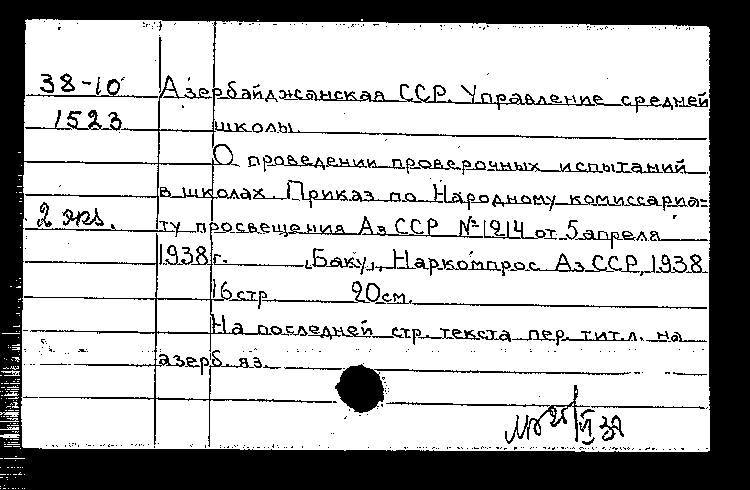 38-10 Азербайджанская ССР. Управление средней
1523 школы.
О проведении проверочных испытаний
в школах. Приказ по Народному комиссариа=
2 экз. ту просвещения Аз ССР №1214 от 5 апреля
1938 г. „Баку„, Наркомпрос Аз ССР, 1938
16 стр 20 см.
На последней стр. текста пер. тит. л. на
азерб. яз.